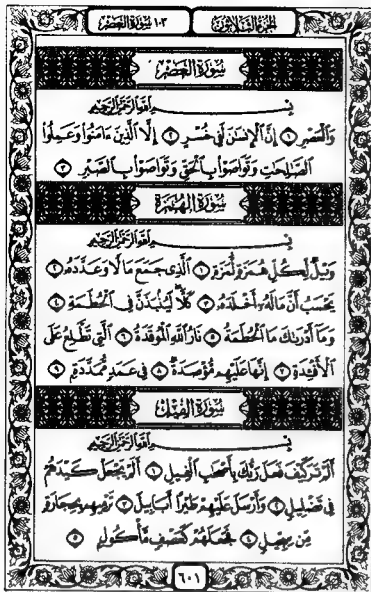 الجزء الثلاثون
١٠٣ سورة العصر
سُورَةُ العَصْرِ
بِسْمِ اللَّهِ الرَّحْمَٰنِ الرَّحِيمِ
وَالْعَصْرِ ١ إِنَّ الْإِنسَانَ لَفِي خُسْرٍ ٢ إِلَّا الَّذِينَ ءَامَنُوا وَعَمِلُوا
الصَّالِحَاتِ وَتَوَاصَوْا بِالْحَقِّ وَتَوَاصَوْا بِالصَّبْرِ ٣
سُورَةُ الهُمَزَةِ
بِسْمِ اللَّهِ الرَّحْمَٰنِ الرَّحِيمِ
وَيْلٌ لِّكُلِّ هُمَزَةٍ لُّمَزَةٍ ١ الَّذِي جَمَعَ مَالًا وَعَدَّدَهُ ٢
يَحْسَبُ أَنَّ مَالَهُ أَخْلَدَهُ ٣ كَلَّا لَيُنبَذَنَّ فِي الْحُطَمَةِ ٤
وَمَا أَدْرَىٰكَ مَا الْحُطَمَةُ ٥ نَارُ اللَّهِ الْمُوقَدَةُ ٦ الَّتِي تَطَّلِعُ عَلَى
الْأَفْئِدَةِ ٧ إِنَّهَا عَلَيْهِم مُّؤْصَدَةٌ ٨ فِي عَمَدٍ مُّمَدَّدَةٍ ٩
سُورَةُ الفِيلِ
بِسْمِ اللَّهِ الرَّحْمَٰنِ الرَّحِيمِ
أَلَمْ تَرَ كَيْفَ فَعَلَ رَبُّكَ بِأَصْحَٰبِ الْفِيلِ ١ أَلَمْ يَجْعَلْ كَيْدَهُمْ
فِي تَضْلِيلٍ ٢ وَأَرْسَلَ عَلَيْهِمْ طَيْرًا أَبَابِيلَ ٣ تَرْمِيهِم بِحِجَارَةٍ
مِّن سِجِّيلٍ ٤ فَجَعَلَهُمْ كَعَصْفٍ مَّأْكُولٍ ٥
٦٠١